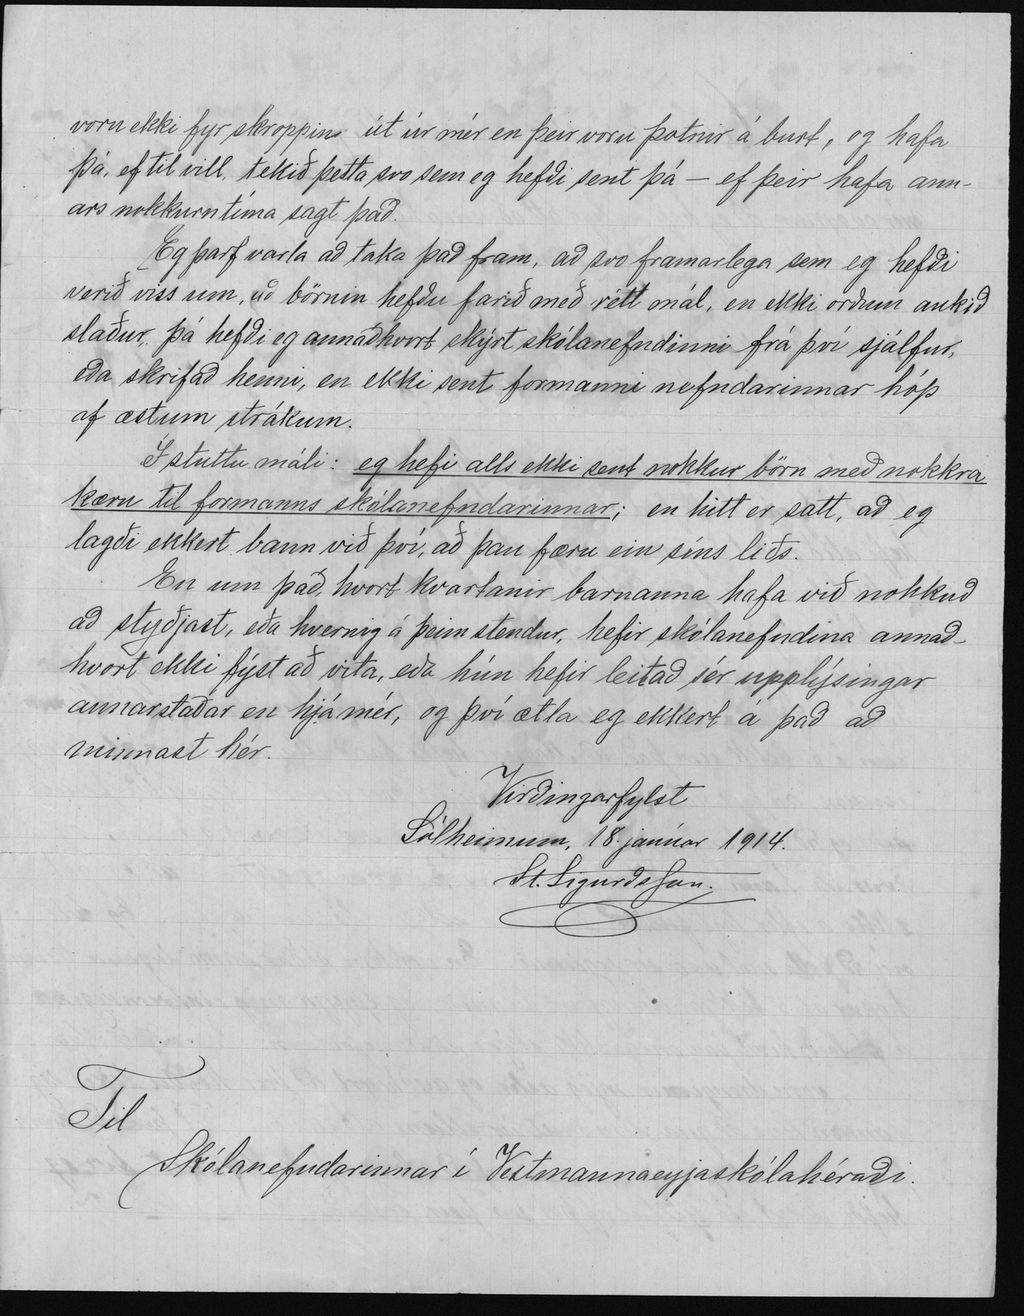 voru ekki fyr skroppin út úr mér en þeir voru þotnir á burt, og hafa
þá, ef til vill, tekið þetta svo sem eg hefði sent þá – ef þeir hafa ann-
ars nokkurntíma sagt það.
Eg þarf varla að taka það fram, að svo framarlega sem eg hefði
verið viss um, að börnin hefðu farið með rétt mál, en ekki orðum aukið
slaður, þá hefði eg annaðhvort skýrt skólanefndinni frá því sjálfur,
eða skrifað henni, en ekki sent formanni nefndarinnar hóp
af æstum strákum.
Í stuttu máli: eg hefi alls ekki sent nokkur börn með nokkra
kæru til formanns skólanefndarinnar; en hitt er satt, að eg
lagði ekkert bann við því, að þau færu ein síns liðs.
En um það, hvort kvartanir barnanna hafa við nokkuð
að styðjast, eða hvernig á þeim stendur, hefir skólanefndina annað-
hvort ekki fýst að vita, eða hún hefir leitað sér upplýsingar
annarstaðar en hjá mér, og því ætla eg ekkert á það að
minnast hér.
Virðingarfylst
Sólheimum, 18. janúar 1914.
St. Sigurðsson.
Til
Skólanefndarinnar í Vestmannaeyjaskólahéraði.